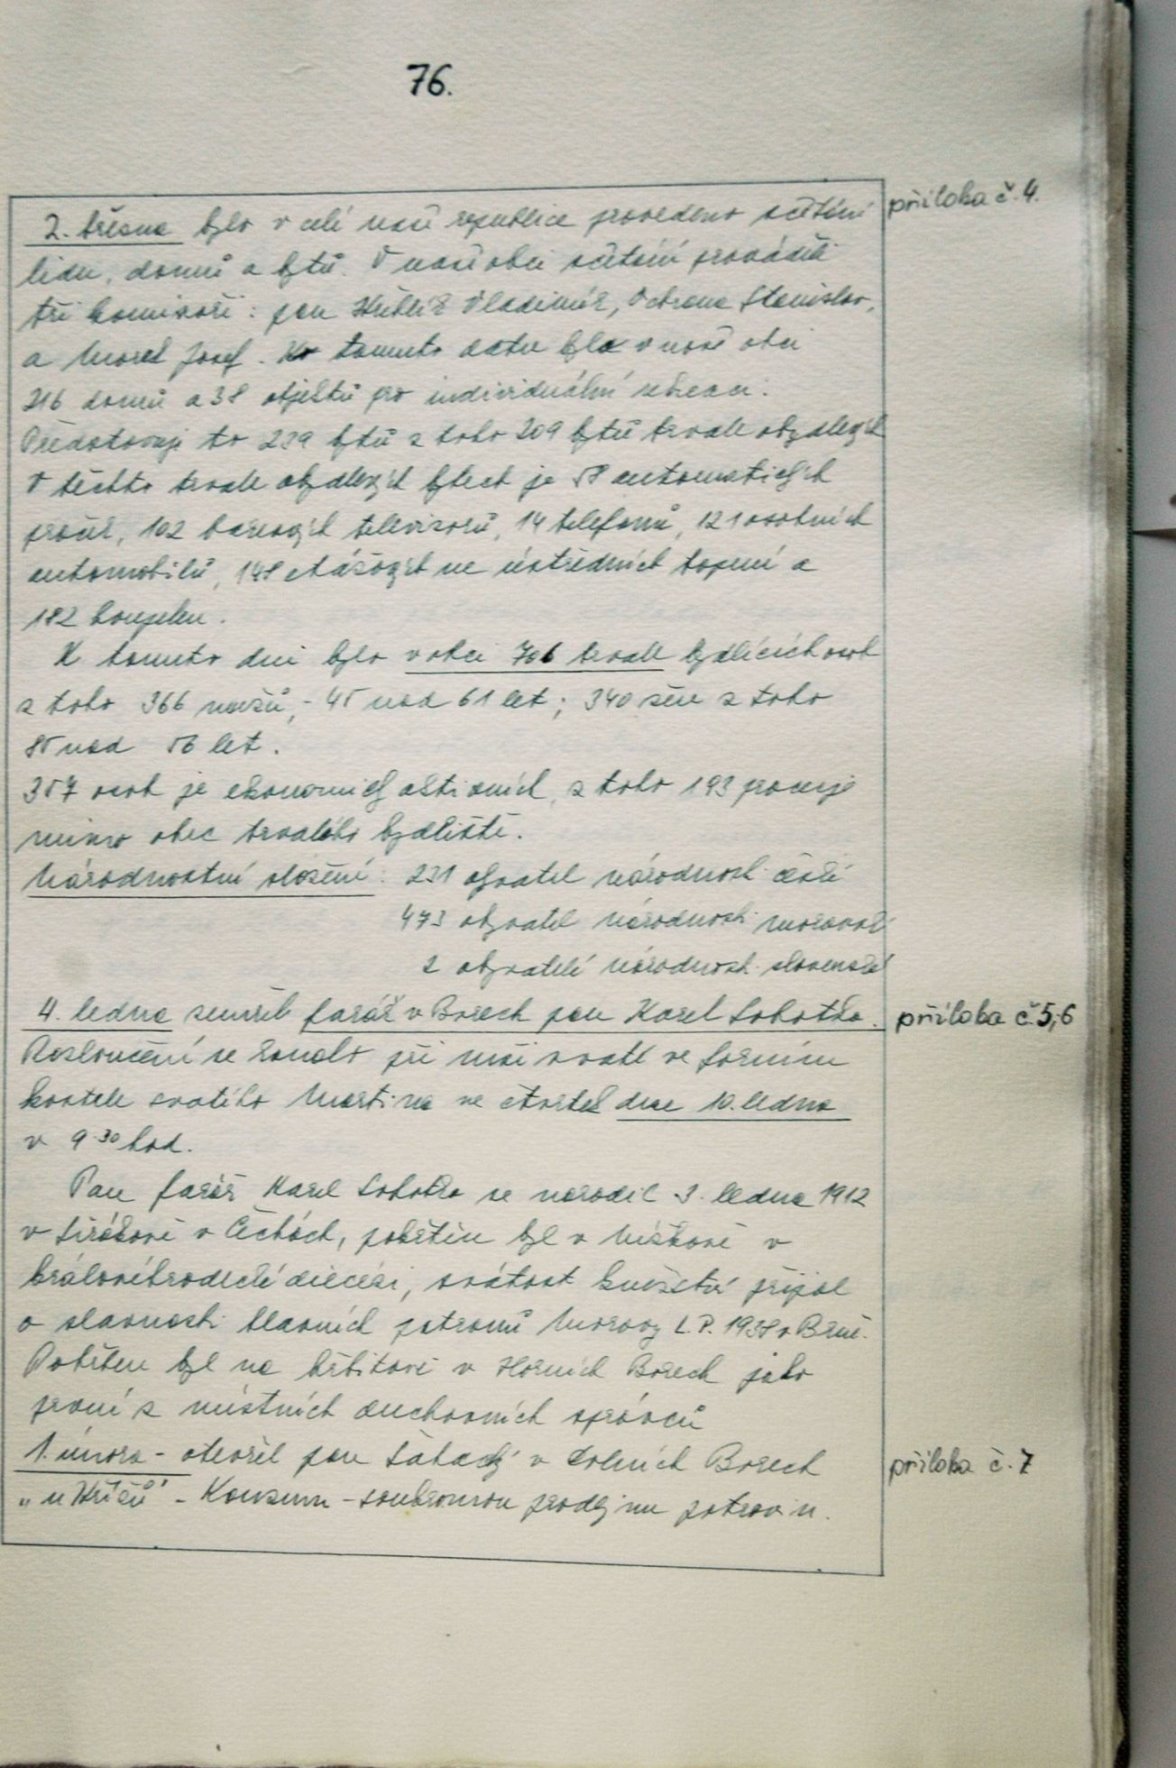 76.
2. března bylo v celé naší republice provedeno sčítání
příloha č. 4.
lidu, domů a bytů. V naší obci sčítání prováděli
tři komisaři: pan Vladimír, Ochrana Stanislav,
a Josef. K tomuto datu bylo v naší obci
216 domů a 38 objektů pro individuální rekreaci.
Představuje to 239 bytů z toho 209 bytů trvale obydlených
V těchto trvale obydlených bytech je 58 automatických
praček, 102 barevných televizorů, 14 telefonů, 121 osobních
automobilů, 148 etážových ne ústředních topení a
182 koupelen.
K tomuto dni bylo v obci 706 trvale bydlících osob
z toho 366 mužů, - 45 nad 61 let; 340 žen z toho
85 nad 56 let.
357 osob je ekonomicky aktivních, z toho 193 pracuje
mimo obec trvalého bydliště.
Národnostní složení: 231 obyvatel národnosti české
473 obyvatel národnosti moravské
2 obyvatelé národnosti slovenské
4. ledna zemřel farář v Borech pan Karel Sobotka.
příloha č. 5, 6
Rozloučení se konalo při mši svaté ve farním
kostele svatého Martina ve čtvrtek dne 10. ledna
v 9 30 hod.
Pan farář Karel Sobotka se narodil 3. ledna 1912
v Sirákově v Čechách, pokřtěn byl v v
královéhradecké diecézi, svátost kněžství přijal
o slavnosti hlavních patronů Moravy L. P. 1938 v Brně.
Pohřben byl na hřbitově v Horních Borech jako
první z místních duchovních správců
1. února - otevřel pan v Dolních Borech
příloha č. 7
- Konzum - soukromou prodejnu potravin.